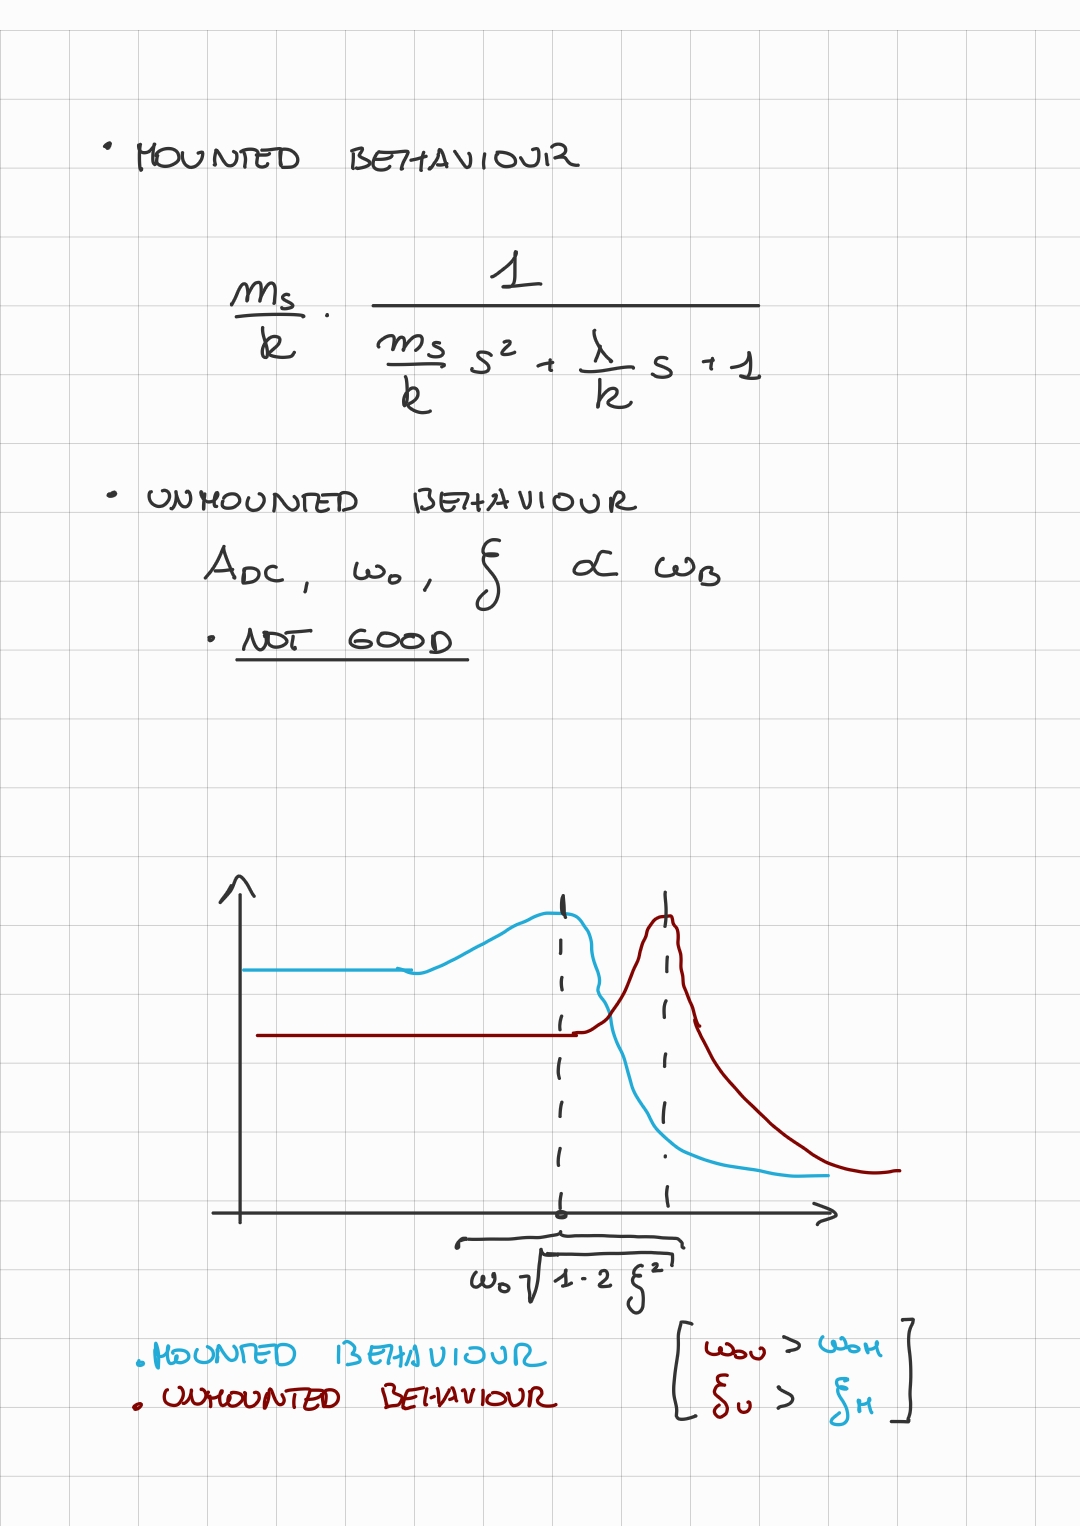 · MOUNTED BEHAVIOUR
m_s/k · 1/(m_s/k s² + λ/k s + 1)
· UNMOUNTED BEHAVIOUR
A_DC, ω₀, ξ ∝ ω_B
· NOT GOOD
ω₀√(1-2ξ²)
· MOUNTED BEHAVIOUR
· UNMOUNTED BEHAVIOUR
[ω_0U > ω_0M
ξ_U > ξ_M]